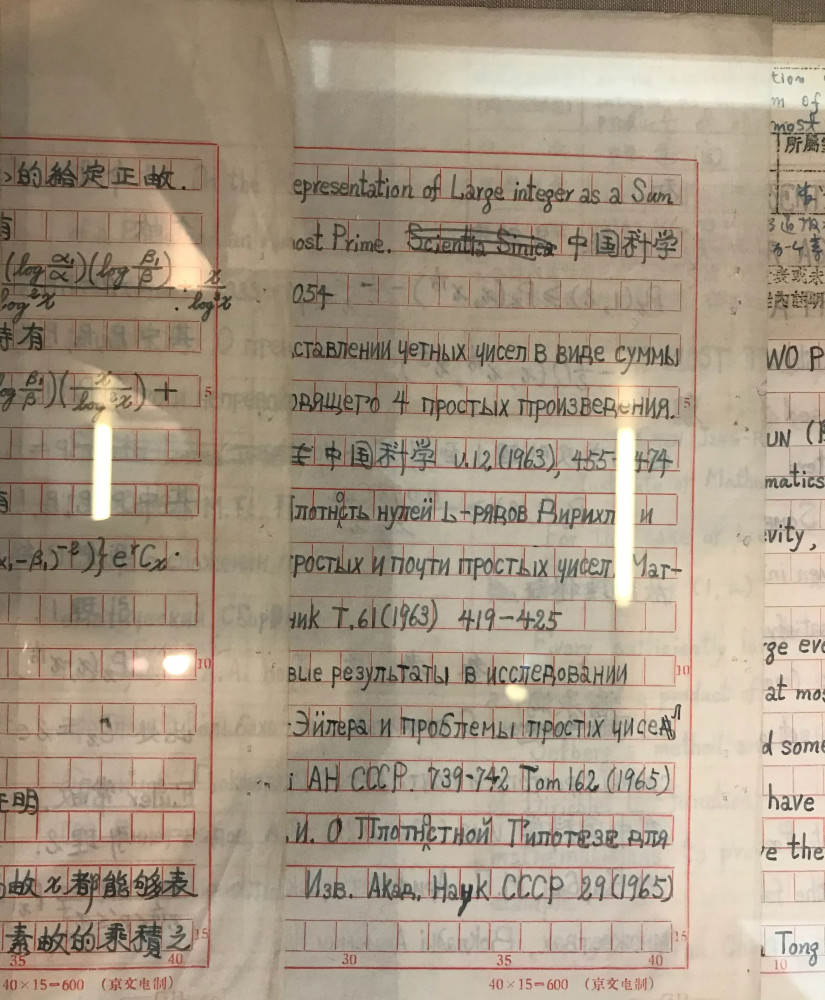 的給定正故.
有
(log α₁/α)(log β₁/β)
log²x · x/log²x
時有
log β₁/β)(x/log²x) +
有
x₁-β₁)⁻²)}eʳCₓ·
10
证明
故 x 都能够表
素故的乘積之
15
35 40
40×15=600 (京文电制)
epresentation of Large integer as a Sum
ost Prime. Scientia Sinica 中国科学
054
ставлении четных чисел в виде суммы
одящего 4 простых произведения.
5
中国科学 v.12,(1963), 455-474
плотность нулей L-рядов Дирихл и
ростых и почти простых чисел. Мат-
ник Т.61(1963) 419-425
вые результаты в исследовании
10
Эйлера и проблемы простіх чисел
і АН СССР. 739-742 Том 162 (1965)
.и. О Плотностной Гипотезе для
Изв. Акад. Наук СССР 29(1965)
15
30 35 40
40×15=600 (京文电制)
tion
m of
most
所屬
WO P
UN (
matics
vity,
ge eve
at mos
d some
have
ve the
Tong
10